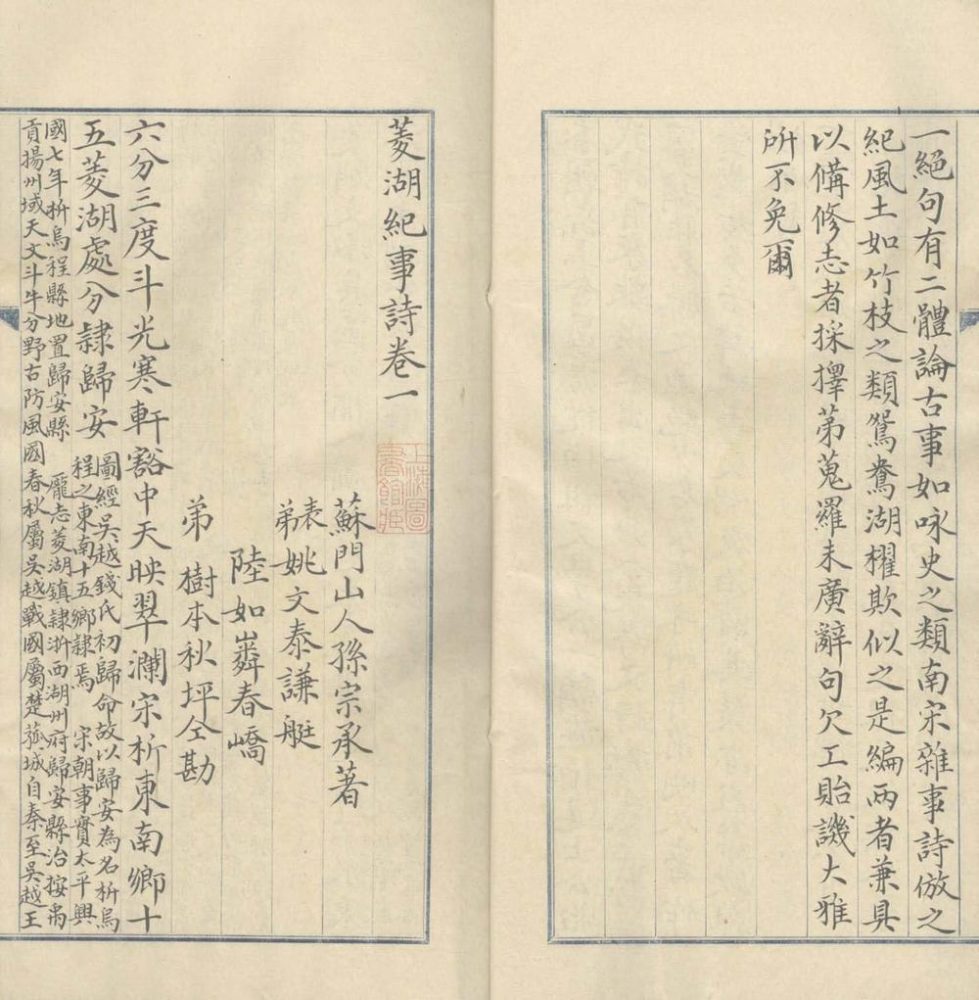 一絕句有二體論古事如咏史之類南宋雜事詩倣之
紀風土如竹枝之類鴛鴦湖櫂歌似之是編兩者兼具
以備修志者採擇第蒐羅未廣辭句欠工貽譏大雅
所不免爾
菱湖紀事詩卷一
上海圖
書館藏
蘇門山人孫宗承著
表弟姚文泰謙艇
陸如粦春嶠
弟樹本秋坪仝勘
六分三度斗光寒軒豁中天映翠瀾宋析東南鄉十
五菱湖處分隸歸安
圖經吳越錢氏初歸命故以歸安為名析烏
程之東南十五鄉隸焉 宋朝事實太平興
國七年析烏程縣地置歸安縣 龎志菱湖鎮隸浙西湖州府歸安縣治按禹
貢揚州域天文斗牛分野古防風國春秋屬吳越戰國屬楚菰城自秦至吳越王